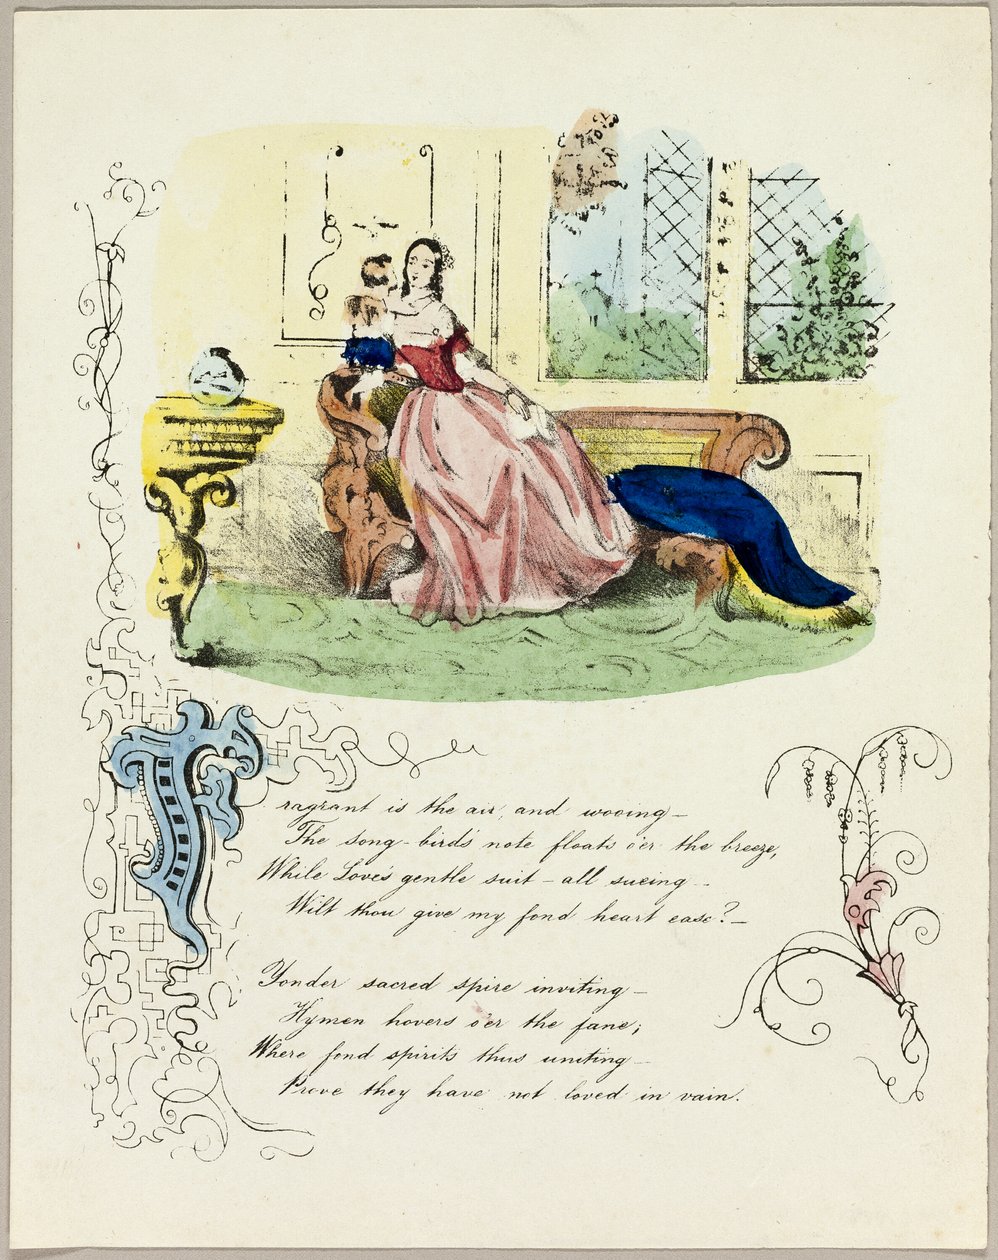 Fragrant is the air, and wooing—
The song-bird's note floats o'er the breeze,
While Love's gentle suit – all sueing –
Wilt thou give my fond heart ease?—
Yonder sacred spire inviting—
Hymen hovers o'er the fane;
Where fond spirits thus uniting—
Prove they have not loved in vain.